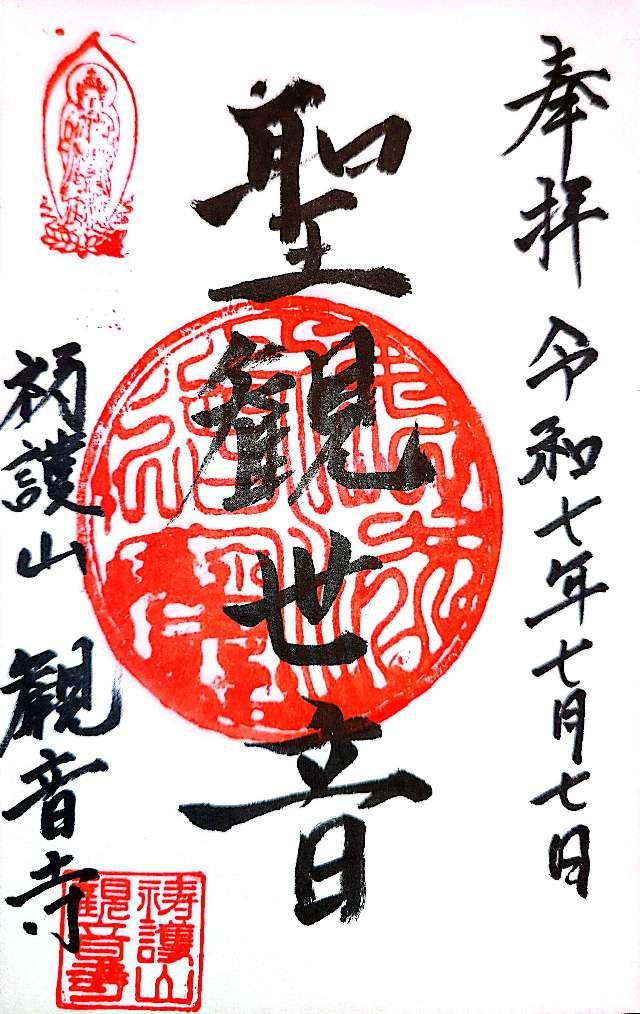 奉拝 令和七年七月七日
聖観世音
祷護山 観音寺
祷護山
観音寺